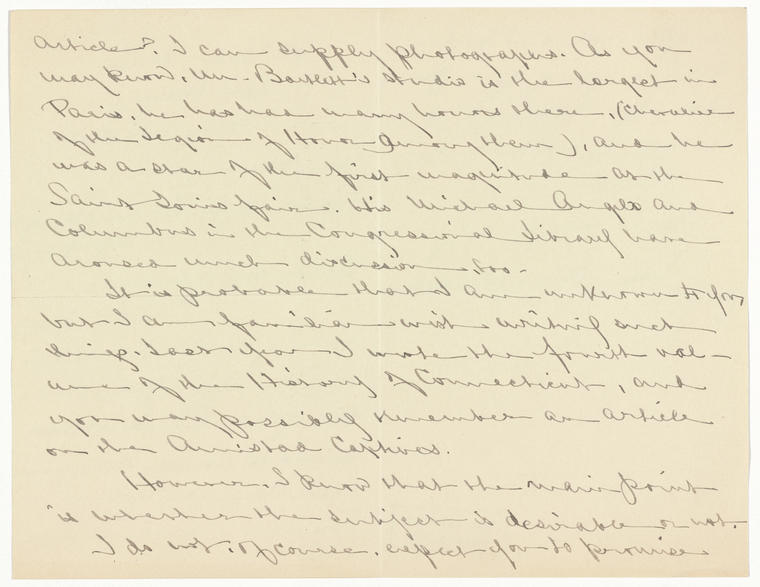 article? I can supply photographs. As you
may know, Mr. Bartlett's studio is the largest in
Paris, he has had many honors there, (Chevalier
of the Legion of Honor among them), and he
was a star of the first magnitude at the
Saint Louis fair. His Michael Angelo and
Columbus in the Congressional Library have
aroused much discussion, too.
It is probable that I am unknown to you,
but I am familiar with writing such
things. Last year I wrote the fourth vol-
ume of the History of Connecticut, and
you may possibly remember an article
on the Amistad Captives.
However, I know that the main point
is whether the subject is desirable or not.
I do not, of course, expect you to promise